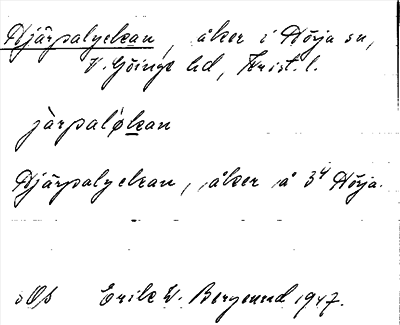 Hjärpalyckan, åker i Hörja sn,
V. Göinge hd, Krist. l.
jàrpaløkan
Hjärpalyckan, åker å 3⁴ Hörja.
Erik W. Berglund 1947.